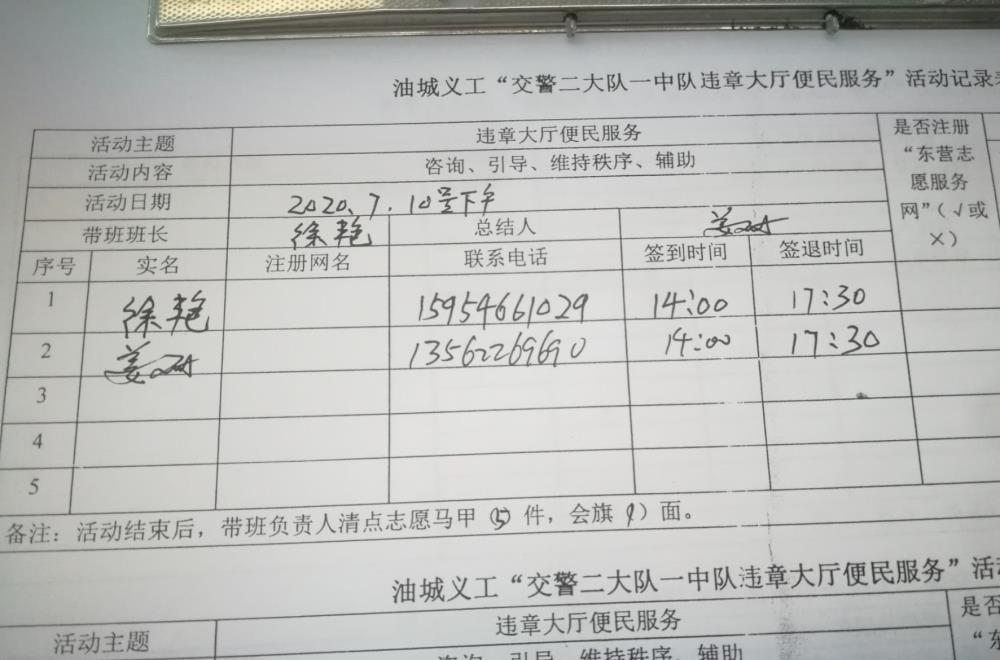 油城义工“交警二大队一中队违章大厅便民服务”活动记录
活动主题 违章大厅便民服务 是否注册“东营志愿服务网”（√或×）
活动内容 咨询、引导、维持秩序、辅助
活动日期 2020.7.10号下午
带班班长 徐艳 总结人 姜
序号 实名 注册网名 联系电话 签到时间 签退时间
1 徐艳 15954661029 14:00 17:30
2 姜 13562269690 14:00 17:30
3
4
5
备注：活动结束后，带班负责人清点志愿马甲（5）件，会旗（1）面。
油城义工“交警二大队一中队违章大厅便民服务”活
活动主题 违章大厅便民服务 是否
咨询、引导、维持秩序、辅助